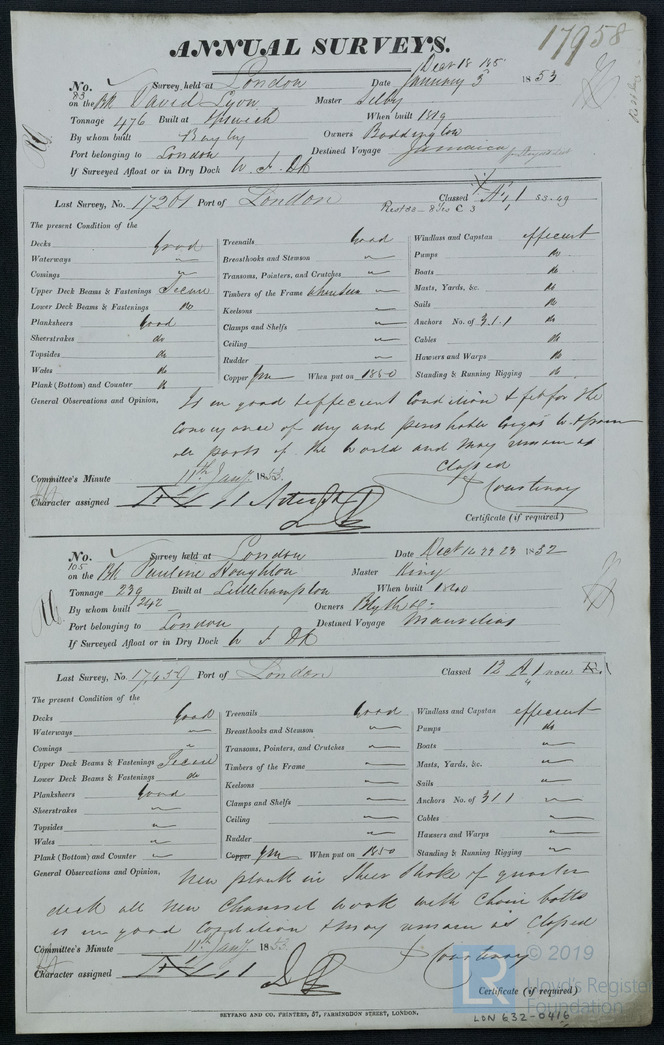 17958
ANNUAL SURVEYS.
No. 83 Survey held at London Date Decr 18 January 5 1853
on the Bk David Lyon Master Selby
Tonnage 476 Built at Ipswich When built 1819
By whom built Bayley Owners Boddington
Port belonging to London Destined Voyage Jamaica
If Surveyed Afloat or in Dry Dock
Last Survey, No. 17261 Port of London Classed
The present Condition of the
Decks Good Treenails Good Windlass and Capstan efficient
Waterways " Breasthooks and Stemson " Pumps do
Comings " Transoms, Pointers, and Crutches " Boats do
Upper Deck Beams & Fastenings Secure Timbers of the Frame Masts, Yards, &c. do
Lower Deck Beams & Fastenings do Keelsons " Sails do
Planksheers Good Clamps and Shelfs " Anchors No. of 3.1.1 do
Sheerstrakes do Ceiling " Cables do
Topsides do Rudder " Hawsers and Warps do
Wales do Copper When put on 1850 Standing & Running Rigging do
Plank (Bottom) and Counter do
General Observations and Opinion, Is in good & efficient Condition & fit for the
conveyance of dry and perishable Cargos to & from
all parts of the World and May remain as
Classed
Committee's Minute 11th Jany 1853. Courtenay
Character assigned
Certificate (if required)
No. 105 Survey held at London Date Decr 16 22 23 1852
on the Bk Pauline Houghton Master King
Tonnage 239 242 Built at Littlehampton When built 1840
By whom built Owners Blyth & Co
Port belonging to London Destined Voyage Mauritius
If Surveyed Afloat or in Dry Dock
Last Survey, No. 17,459 Port of London Classed 12 A 1 now
The present Condition of the
Decks Good Treenails Good Windlass and Capstan efficient
Waterways " Breasthooks and Stemson " Pumps do
Comings " Transoms, Pointers, and Crutches " Boats "
Upper Deck Beams & Fastenings Secure Timbers of the Frame " Masts, Yards, &c. "
Lower Deck Beams & Fastenings do Keelsons " Sails "
Planksheers Good Clamps and Shelfs " Anchors No. of 3 1 1 "
Sheerstrakes " Ceiling " Cables "
Topsides " Rudder " Hawsers and Warps "
Wales " Copper When put on 1850 Standing & Running Rigging "
Plank (Bottom) and Counter "
General Observations and Opinion, New plank in Sheer Strake of quarter
deck all New Channel work with Chain bolts
is in good Condition & may remain as Classed
Committee's Minute 11th Jany 1853. Courtenay
Character assigned
Certificate (if required)
BEYFANG AND CO. PRINTERS, 57, FARRINGDON STREET, LONDON.
LON 632-0416
© 2019
LR
Lloyd's Register
Foundation